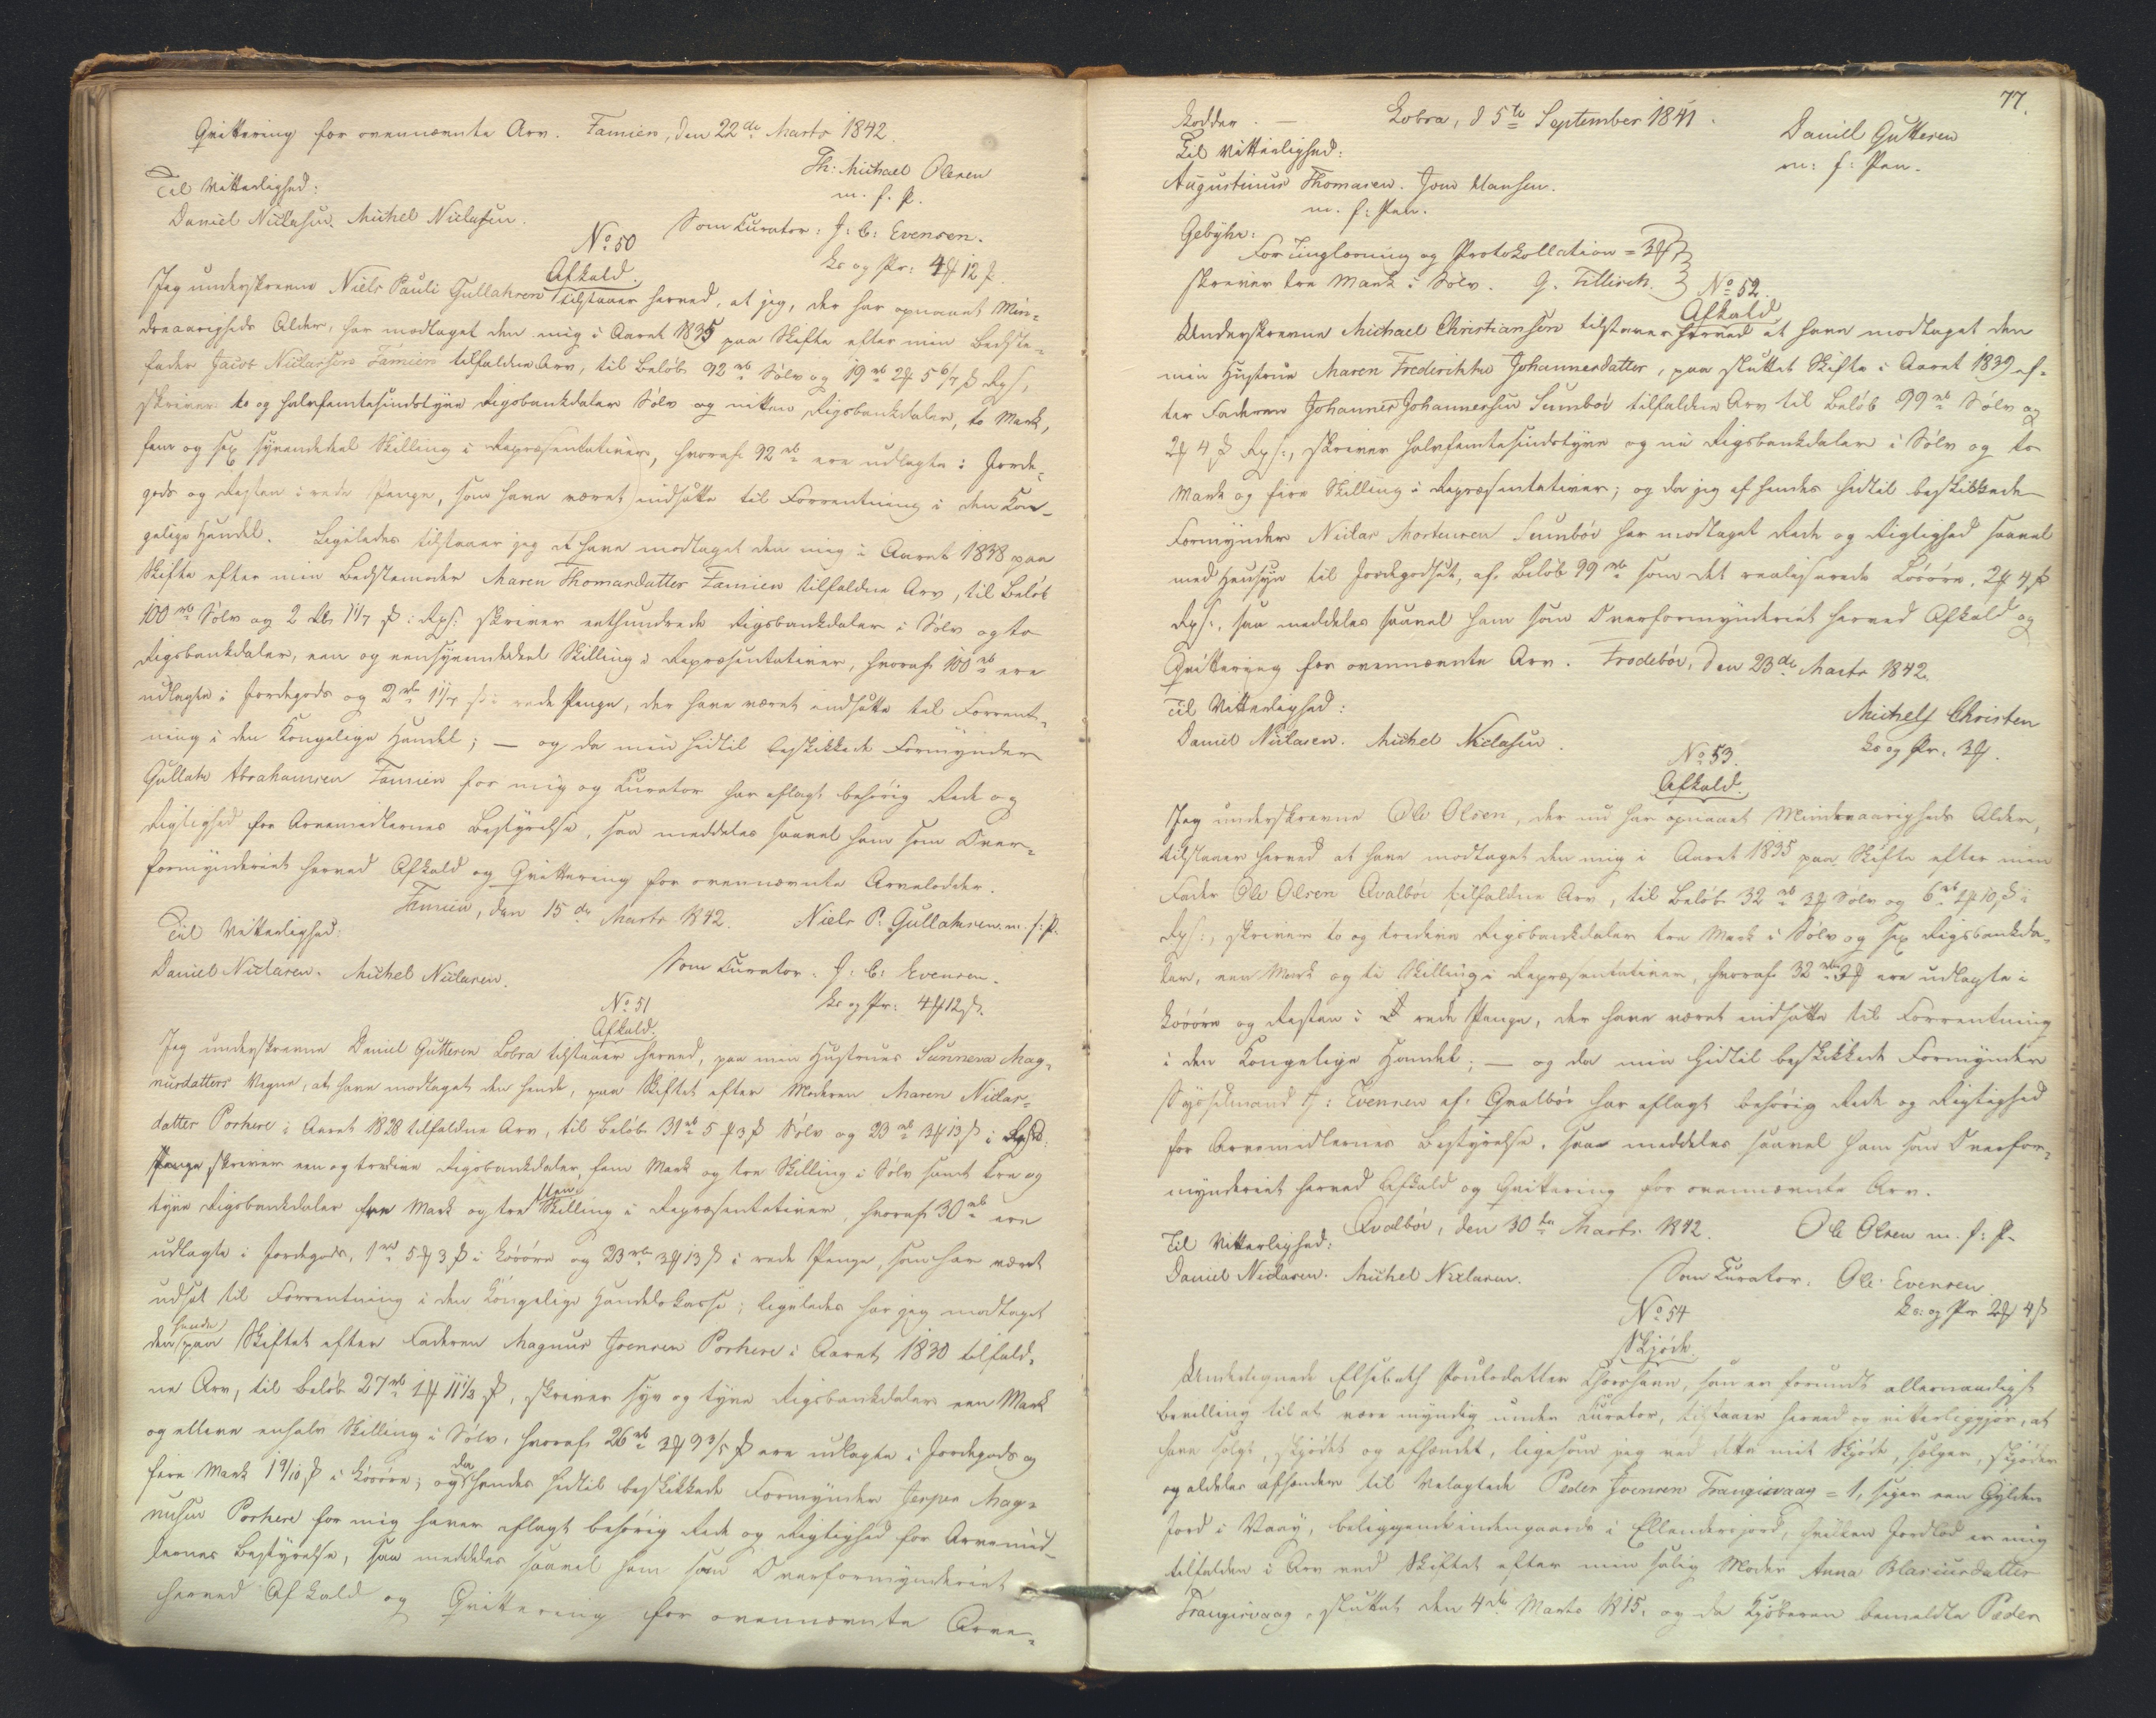 Qvittering for ovennævnte Arv. Famien, den 22de Marts 1842.
Th: Michael Olesen
m. f. P.
Til Vitterlighed:
Daniel Niclasen. Michel Niclasen.
Som Curator: J: C: Evensen.
No 50
Ls og Pr: 4 ℳ 12 ß.
Afkald.
Jeg underskrevne Niels Pauli Gullaksen tilstaaer herved, at jeg, der har opnaaet Min-
dreaarigheds Alder, har modtaget den mig i Aaret 1835 paa Skifte efter min Bedste-
fader Jacob Niclassen Famien tilfaldne Arv, til Beløb 92 rb Sølv og 19 rb 2 ℳ 5 6/7 ß Rps,
skriver to og halvfemtesindstyve Rigsbankdaler Sølv og nitten Rigsbankdaler, to Mark,
fem og sex syvendedeel Skilling i Repræsentativer, hvoraf 92 rb ere udlagte i Jorde-
gods og Resten i rede Penge, som have været indsatte til Forrentning i den Kon-
gelige Handel. Ligeledes tilstaaer jeg at have modtaget den mig i Aaret 1838 paa
Skifte efter min Bedstemoder Maren Thomasdatter Famien tilfaldne Arv, til Beløb
100 rb Sølv og 2 Rb 1 1/7 ß: Rps: skriver eethundrede Rigsbankdaler i Sølv og to
Rigsbankdaler, een og eensyvendedeel Skilling i Repræsentativer, hvoraf 100 rb ere
udlagte i Jordegods og 2 rb 1 1/7 ß i rede Penge, der have været indsatte til Forrent-
ning i den Kongelige Handel; — og da min hidtil beskikkede Formynder
Gullak Abrahamsen Famien for mig og Curator har aflagt behørig Rede og
Rigtighed for Arvemidlernes Bestyrelse, saa meddeles saavel ham som Over-
formynderiet herved Afkald og Qvittering for ovennævnte Arvelodder.
Famien, den 15de Marts 1842. Niels P. Gullaksen. m. f: P.
Til Vitterlighed:
Daniel Niclasen. Michel Niclasen.
Som Curator: J: C: Evensen.
No 51
Ls og Pr: 4 ℳ 12 ß.
Afkald.
Jeg underskrevne Daniel Guttesen Lobra tilstaaer herved, paa min Hustrues Sunneva Mag-
nusdatters Vegne, at have modtaget den hende, paa Skiftet efter Moderen Maren Niclas-
datter Porkere i Aaret 1828 tilfaldne Arv, til Beløb 31 rb 5 ℳ 3 ß Sølv og 23 rb 3 ℳ 13 ß i Rps:
Penge skriver een og tredive Rigsbankdaler, fem Mark og tre Skilling i Sølv samt tre og
tyve Rigsbankdaler tre Mark og tretten Skilling i Repræsentativer, hvoraf 30 rb ere
udlagte i Jordegods, 1 rb 5 ℳ 3 ß i Løsøre og 23 rb 3 ℳ 13 ß i rede Penge, som har været
udsat til Forrentning i den Kongelige Handelskasse; ligeledes har jeg modtaget
den hende paa Skiftet efter Faderen Magnus Joensen Porkere i Aaret 1830 tilfald-
ne Arv, til Beløb 27 rb 1 ℳ 11 1/2 ß, skriver syv og tyve Rigsbankdaler een Mark
og elleve enhalv Skilling i Sølv, hvoraf 26 rb 3 ℳ 9 3/5 ß ere udlagte i Jordegods og
fire Mark 1 9/10 ß i Løsøre; og da hendes hidtil beskikkede Formynder Jesper Mag-
nusen Porkere for mig haver aflagt behørig Rede og Rigtighed for Arvemid-
lernes Bestyrelse, saa meddeles saavel ham som Overformynderiet
herved Afkald og Qvittering for ovennævnte Arve-
77.
lodder. — Lobra, d 5te September 1841.
Daniel Guttesen
m: f: Pen.
Til Vitterlighed:
Augustinus Thomasen. Joen Hansen.
m. f: Pen.
Gebyhr:
For Tinglæsning og Protokollation = 3 ℳ
skriver tre Mark i Sølv. G. Tillisch.
No 52.
Afkald
Underskrevne Michael Christiansen tilstaaer herved at have modtaget den
min Hustrue Maren Fredirikke Johannesdatter, paa sluttet Skifte i Aaret 1839 ef-
ter Faderen Johannes Johannessen Sumbøe tilfaldne Arv til Beløb 99 rb Sølv og
2 ℳ 4 ß Rps:, skriver halvfemtesindstyve og ni Rigsbankdaler i Sølv og to
Mark og fire Skilling i Repræsentativer; og da jeg af hendes hidtil beskikkede
Formynder Niclas Mortensen Sumbøe har modtaget Rede og Rigtighed saavel
med Hensyn til Jordegodset, af Beløb 99 rb som det realiserede Løsøre, 2 ℳ 4 ß
Rps:, saa meddeles saavel ham som Overformynderiet herved Afkald og
Qvittering for ovennævnte Arv. Frodebøe, den 23de Marts 1842.
Til Vitterlighed:
Michels Christen
Daniel Niclasen. Michel Niclasen.
Ls og Pr. 3 ℳ.
No 53.
Afkald.
Jeg underskrevne Ole Olsen, der nu har opnaaet Mindreaarigheds Alder,
tilstaaer herved at have modtaget den mig i Aaret 1835 paa Skifte efter min
Fader Ole Olsen Qvalbøe tilfaldne Arv, til Beløb 32 rb 3 ℳ Sølv og 6 rb 1 ℳ 10 ß i
Rps:, skriver to og tredive Rigsbankdaler tre Mark i Sølv og sex Rigsbankda-
ler, een Mark og ti Skilling i Repræsentativer, hvoraf 32 rb 3 ℳ ere udlagte i
Løsøre og Resten i rede Penge, der have været indsatte til Forrentning
i den Kongelige Handel; — og da min hidtil beskikkede Formynder
Sysselmand J: Evensen af Qvalbøe har aflagt behørig Rede og Rigtighed
for Arvemidlernes Bestyrelse, saa meddeles saavel ham som Overfor-
mynderiet herved Afkald og Qvittering for ovennævnte Arv.
Qvalbøe, den 30te Marts 1842. Ole Olsen m. f: P.
Til Vitterlighed:
Daniel Niclasen. Michel Niclasen.
Som Curator: Ole Evensen
No 54
Ls: og Pr 2 ℳ 4 ß
Skjøde.
Undertegnede Elsebeth Poulsdatter Thorshavn, som er forundt allernaadigst
Bevilling til at være myndig under Curator, tilstaaer herved og vitterliggjør, at
have solgt, skjødet og afhændet, ligesom jeg ved dette mit Skjøde, sælger, skjøder
og aldeles afhænder til Velagtede Peder Joensen Trangisvaag = 1, siger een Gylden
Jord i Vaag, beliggende indengaards i Ellendersjord, hvilken Jordlod er mig
tilfalden i Arv ved Skiftet efter min salig Moder Anna Blasiusdatter
Trangisvaag, sluttet den 4de Marts 1815, og da Kjøberen bemeldte Peder